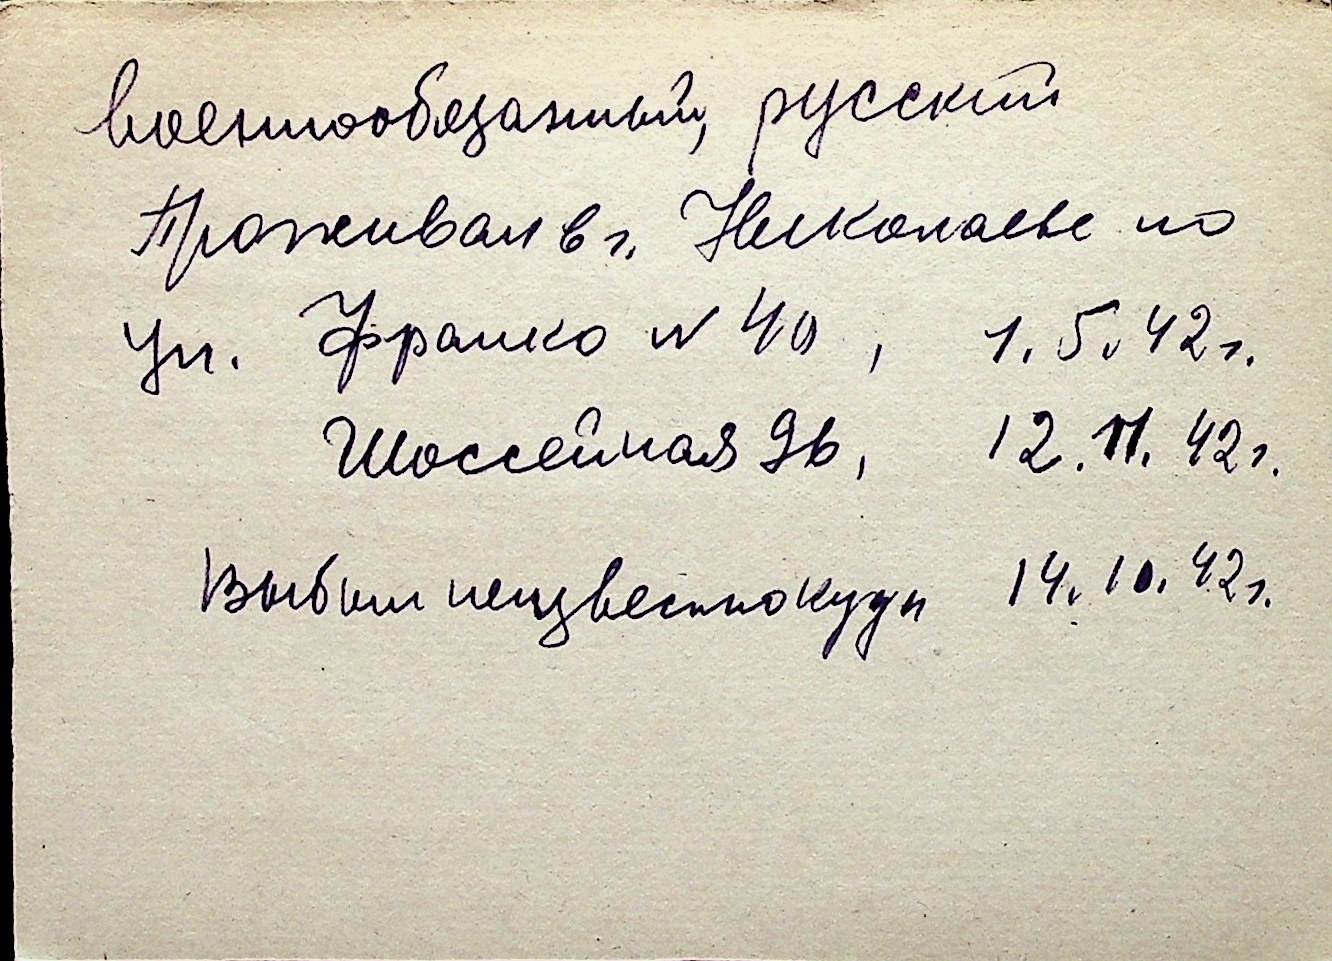 военнообязанный, русский
Проживал в г. Николаеве по
ул. Франко № 40, 1.5.42г.
Шоссейная 96, 12.П.42г.
Выбыл неизвестнокуда 14.10.42г.